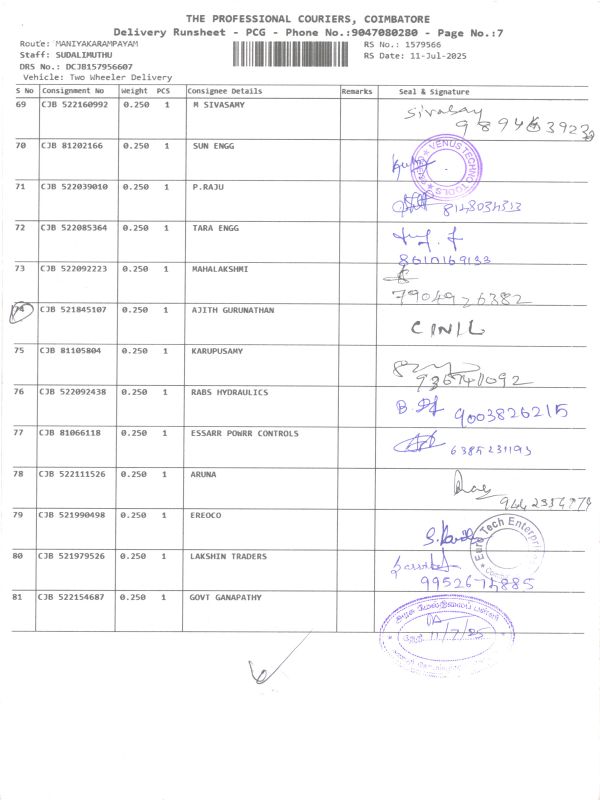 THE PROFESSIONAL COURIERS, COIMBATORE
Delivery Runsheet - PCG - Phone No.:9047080280 - Page No.:7
Route: MANIYAKARAMPAYAM RS No.: 1579566
Staff: SUDALIMUTHU RS Date: 11-Jul-2025
DRS No.: DCJB157956607
Vehicle: Two Wheeler Delivery
S No Consignment No Weight PCS Consignee Details Remarks Seal & Signature
69 CJB 522160992 0.250 1 M SIVASAMY Sivasamy
70 CJB 81202166 0.250 1 SUN ENGG VENUS TECHNO TOOLS
71 CJB 522039010 0.250 1 P.RAJU 8148034333
72 CJB 522085364 0.250 1 TARA ENGG
8610169133
73 CJB 522092223 0.250 1 MAHALAKSHMI
7904926382
74 CJB 521845107 0.250 1 AJITH GURUNATHAN
C IN/L
75 CJB 81105804 0.250 1 KARUPUSAMY
76 CJB 522092438 0.250 1 RABS HYDRAULICS 9003826215
77 CJB 81066118 0.250 1 ESSARR POWRR CONTROLS 6385231193
78 CJB 522111526 0.250 1 ARUNA
79 CJB 521990498 0.250 1 EREOCO Euro Tech Enterprises
80 CJB 521979526 0.250 1 LAKSHIN TRADERS
9952674885
81 CJB 522154687 0.250 1 GOVT GANAPATHY
11/7/25